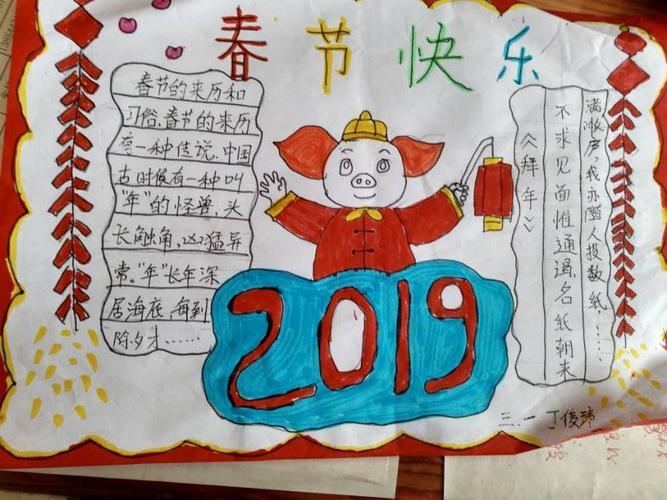 春节快乐
春节的来历和
习俗,春节的来历
有一种传说,中国
古时候有一种叫
"年"的怪兽,头
长触角,凶猛异
常。"年"长年深
居海底,每到
除夕才……
《拜年》
不求见面惟通谒,名纸朝来
满敝庐,我亦随人投数纸……
2019
三.一 丁俊